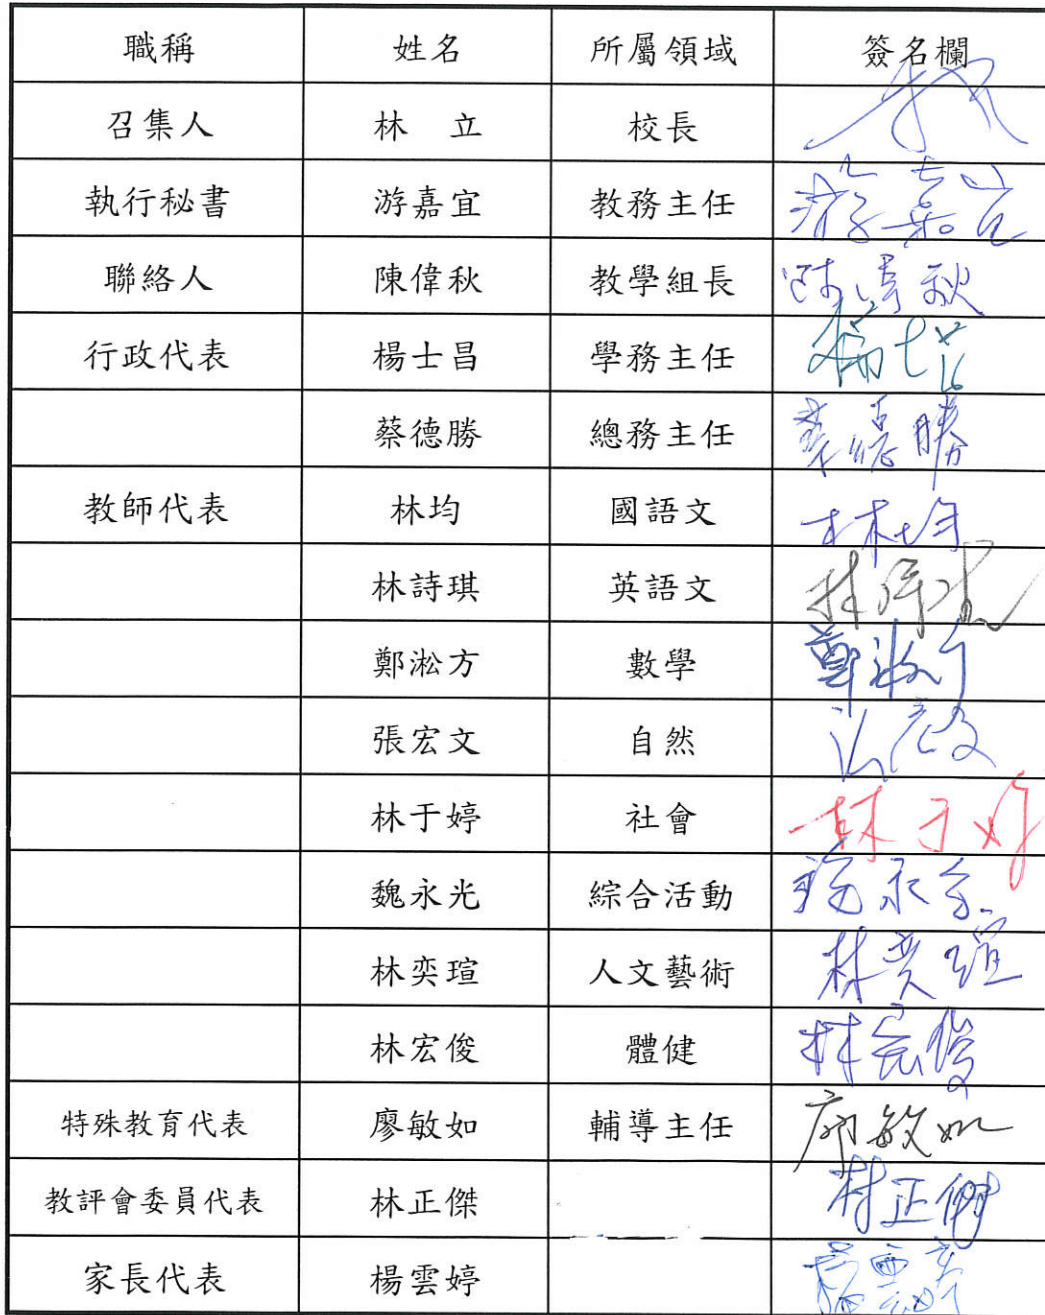 職稱 姓名 所屬領域 簽名欄
召集人 林 立 校長
執行秘書 游嘉宜 教務主任 游嘉宜
聯絡人 陳偉秋 教學組長 陳偉秋
行政代表 楊士昌 學務主任
蔡德勝 總務主任 蔡德勝
教師代表 林均 國語文 林均
林詩琪 英語文
鄭淞方 數學
張宏文 自然
林于婷 社會 林于婷
魏永光 綜合活動
林奕瑄 人文藝術 林奕瑄
林宏俊 體健 林宏俊
特殊教育代表 廖敏如 輔導主任 廖敏如
教評會委員代表 林正傑 林正傑
家長代表 楊雲婷 楊雲婷